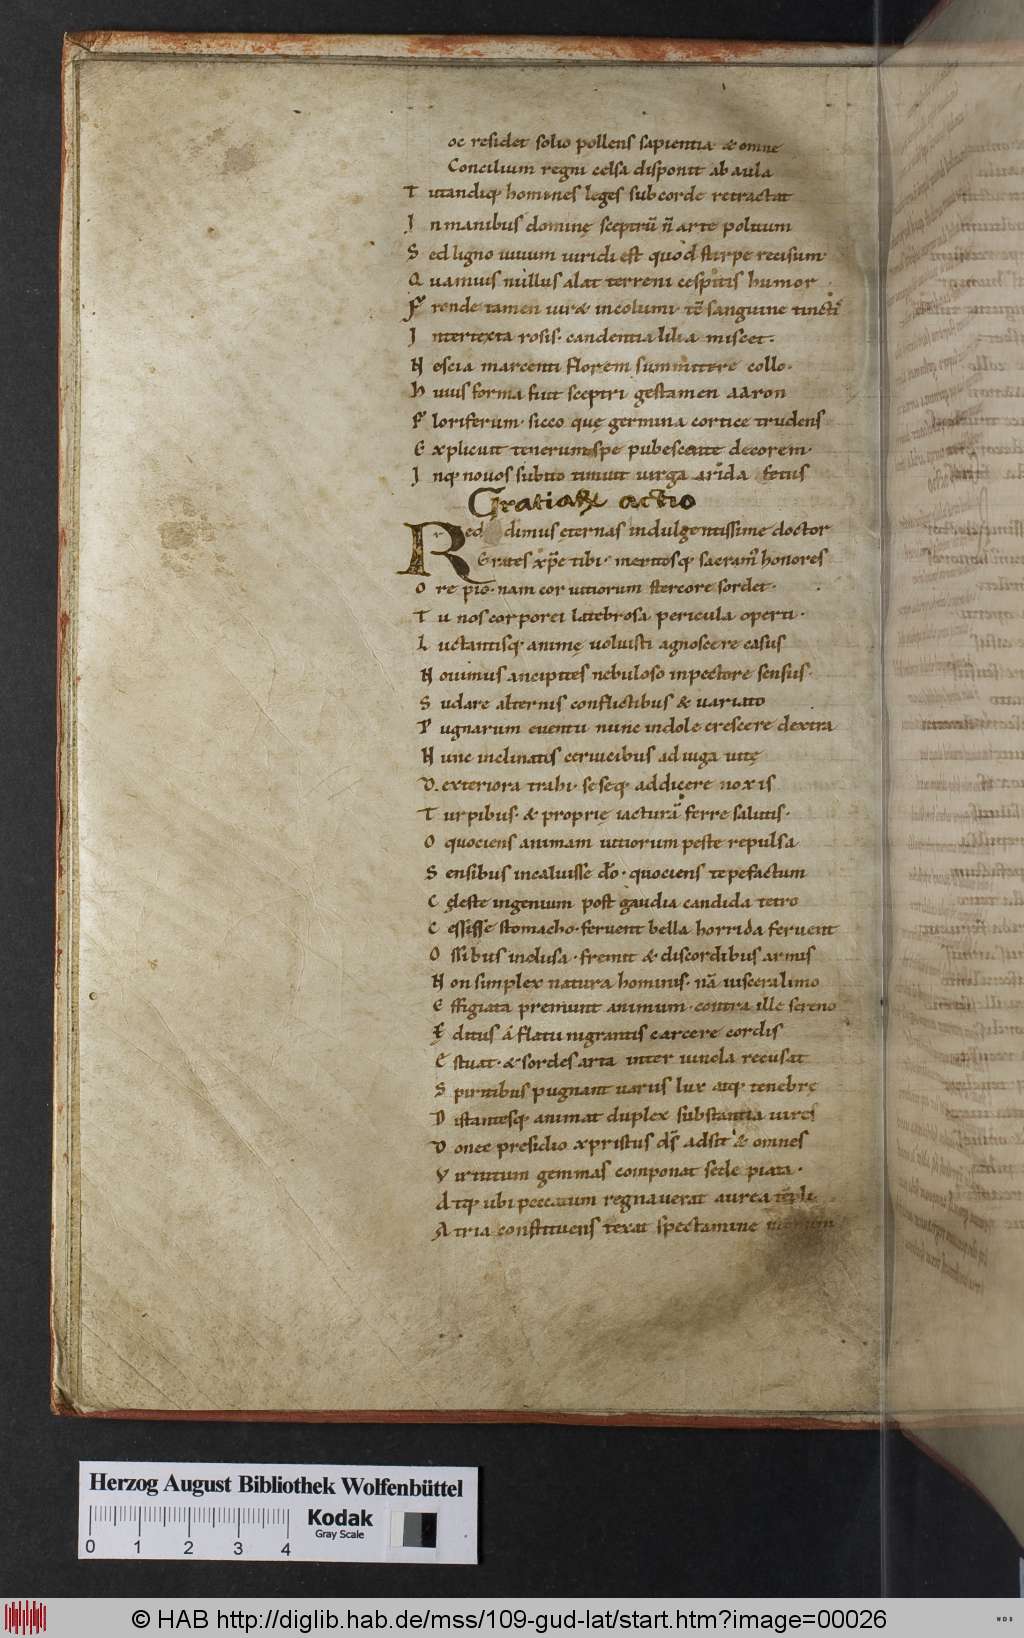 oc residet solio pollens sapientia & omne
Concilium regni celsa disponit ab aula
T utandiq; homines leges sub corde retractat
I n manibus dominę sceptrū ñ arte politum
S ed ligno uiuum uiridi est quod stirpe recisum·
Q uamuis nullus alat terreni cespitis humor
F ronde tamen uir& incolumi· tē sanguine tinctis
I ntertexta rosis· candentia lilia miscet·
N escia marcenti florem summittere collo·
H uius forma fuit sceptri gestamen aaron
F loriferum· sicco quę germina cortice trudens
E xplicuit tenerum spe pubescente decorem·
I nq; nouos subito timuit uirga arida fetus
Gratiarū actio
R eddimus eternas indulgentissime doctor
Grates xp̄e tibi· meritosq; sacram' honores
O re pio· nam cor uitiorum stercore sordet·
T u nos corporei latebrosa pericula operti·
L uctantisq; animę uoluisti agnoscere casus
N ouimus ancipites nebuloso in pectore sensus·
S udare alternis conflictibus & uariato
P ugnarum euentu nunc indole crescere dextra
N unc inclinatis ceruicibus ad iuga uitę
D. exteriora trahi· seseq; addicere noxis
T urpibus· & proprię iacturā ferre salutis·
O quociens animam uitiorum peste repulsa
S ensibus incaluisse dō· quociens tepefactum
C ęleste ingenium post gaudia candida tetro
C essisse stomacho· feruent bella horrida feruent
O ssibus inclusa· fremit & discordibus armis
N on simplex natura hominis· nā uiscera limo
E ffigiata premunt animum· contra ille sereno
E ditus á flatu nigrantis carcere cordis
E stuat· & sordes arta inter uincla recusat
S piritibus pugnant uariis lux atq; tenebrę
D istantesq; animat duplex substantia uires
D onec presidio xpristus ds̄ adsit & omnes
V irtutum gemmas componat sede piata·
A tq; ubi peccatum regnauerat aurea tēpli
A tria constituens texat spectamine morum
Herzog August Bibliothek Wolfenbüttel
Kodak
Gray Scale
0 1 2 3 4
© HAB http://diglib.hab.de/mss/109-gud-lat/start.htm?image=00026